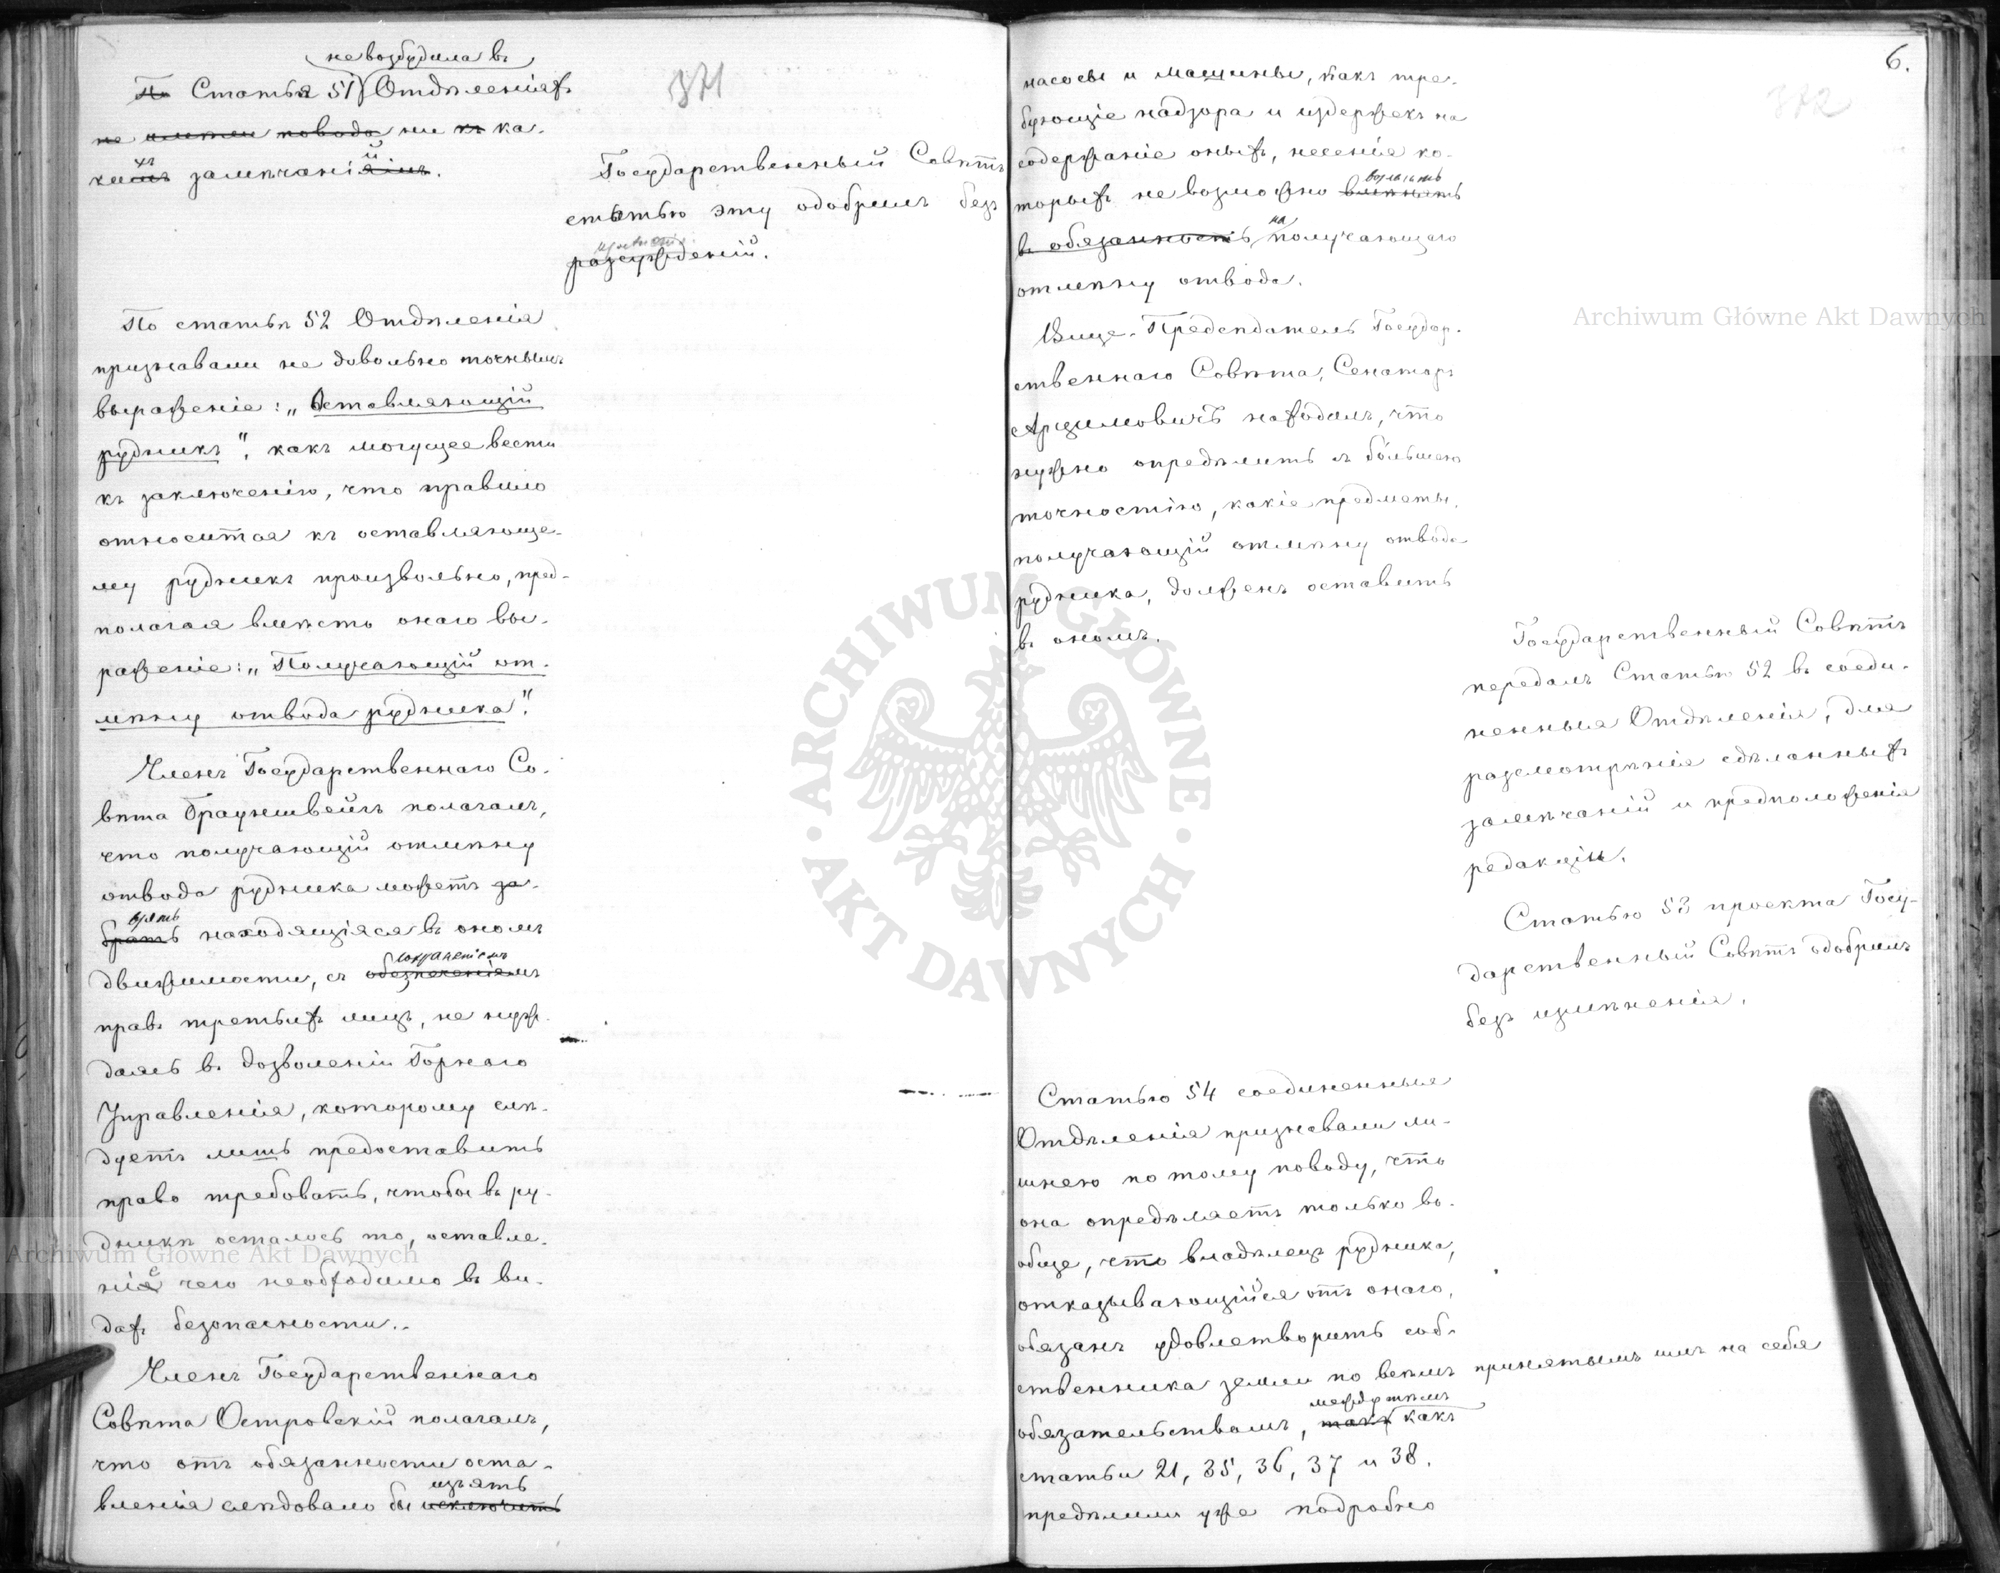 371
не возбудила въ
По Статья 51 Отдѣленіяхъ
не имѣли повода ни къ ка-
кихъ замѣчаній.
Государственный Совѣтъ
статью эту одобрилъ безъ
разсужденій.
По статьѣ 52 Отдѣленія
признавали не довольно точнымъ
выраженіе: „Оставляющій
рудникъ", какъ могущее вести
къ заключенію, что правило
относится къ оставляюще-
му рудникъ произвольно, пред-
полагая вмѣсто онаго вы-
раженіе: „Получающій от-
мѣну отвода рудника".
Членъ Государственнаго Со-
вѣта Брауншвейгъ полагалъ,
что получающій отмѣну
отвода рудника можетъ за-
взять
брать находящіяся въ ономъ
сохраненіемъ
движимости, съ обезпеченіемъ
правъ третьихъ лицъ, не нуж-
даясь въ дозволеніи Горнаго
Управленія, которому слѣ-
дуетъ лишь предоставить
право требовать, чтобы въ ру-
дникѣ осталось то, оставле-
ніе чего необходимо въ ви-
дахъ безопасности.
Членъ Государственнаго
Совѣта Островскій полагалъ,
что отъ обязанности оста-
изъять
вленія слѣдовало бы исключить
6.
372
насосы и машины, какъ тре-
бующіе надзора и издержекъ на
содержаніе оныхъ, несенія ко-
возлагать
торыхъ не возможно вмѣнять
на
въ обязанность получающаго
отмѣну отвода.
Вице-Предсѣдатель Государ-
ственнаго Совѣта, Сенаторъ
Арцимовичъ находилъ, что
нужно опредѣлить съ бо́льшею
точностію, какіе предметы,
получающій отмѣну отвода
рудника, долженъ оставить
въ ономъ.
Государственный Совѣтъ
передалъ Статью 52 въ соеди-
ненныя Отдѣленія, для
разсмотрѣнія сдѣланныхъ
замѣчаній и предположенія
редакціи.
Статью 53 проекта Госу-
дарственный Совѣтъ одобрилъ
безъ измѣненія.
Статью 54 соединенныя
Отдѣленія признавали ли-
шнею по тому поводу, что
она опредѣляетъ только во-
обще, что владѣлецъ рудника,
отказывающійся отъ онаго,
обязанъ удовлетворить соб-
ственника земли по всѣмъ принятымъ имъ на себя
между тѣмъ
обязательствамъ, такъ какъ
статьи 21, 35, 36, 37 и 38.
предѣлили уже подробно
Archiwum Główne Akt Dawnych
Archiwum Główne Akt Dawnych
ARCHIWUM GŁÓWNE · AKT DAWNYCH ·